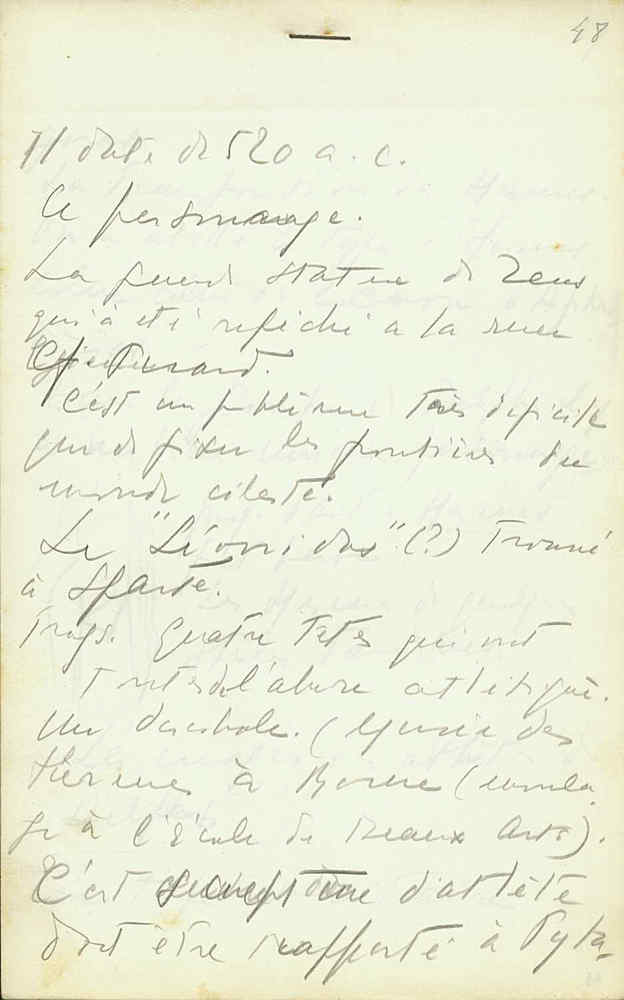 48
Il date de 520 a. c.
Ce personnage.
La grande statue de Zeus
qui a été repéché a la mer
C'est un problème très dificile
que de fixer les frontières du
monde céleste.
Le "Léonidas" (?) Trouvé
à Sparte.
Frags. Quatre Têtes qui ont
Toutes l'allure athlétique.
Un discobole. (Musée des
Thermes à Rome (moula
ge à l'école de Beaux Arts).
C'est d'atlète
doit être rapporté à Pyta-